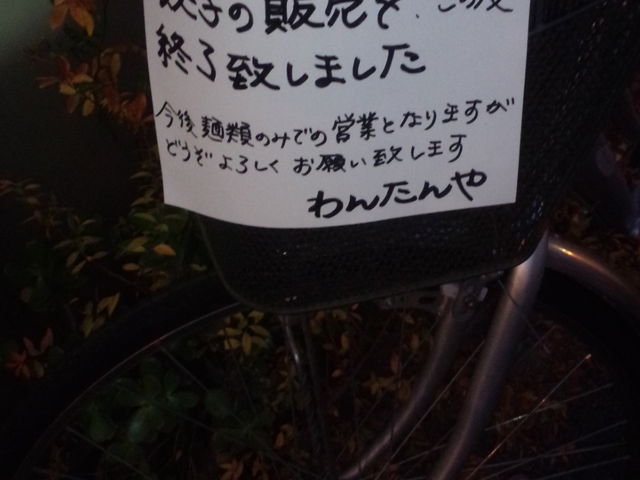 餃子の販売を、この度
終了致しました
今後麺類のみでの営業となりますが
どうぞよろしくお願い致します
わんたんや